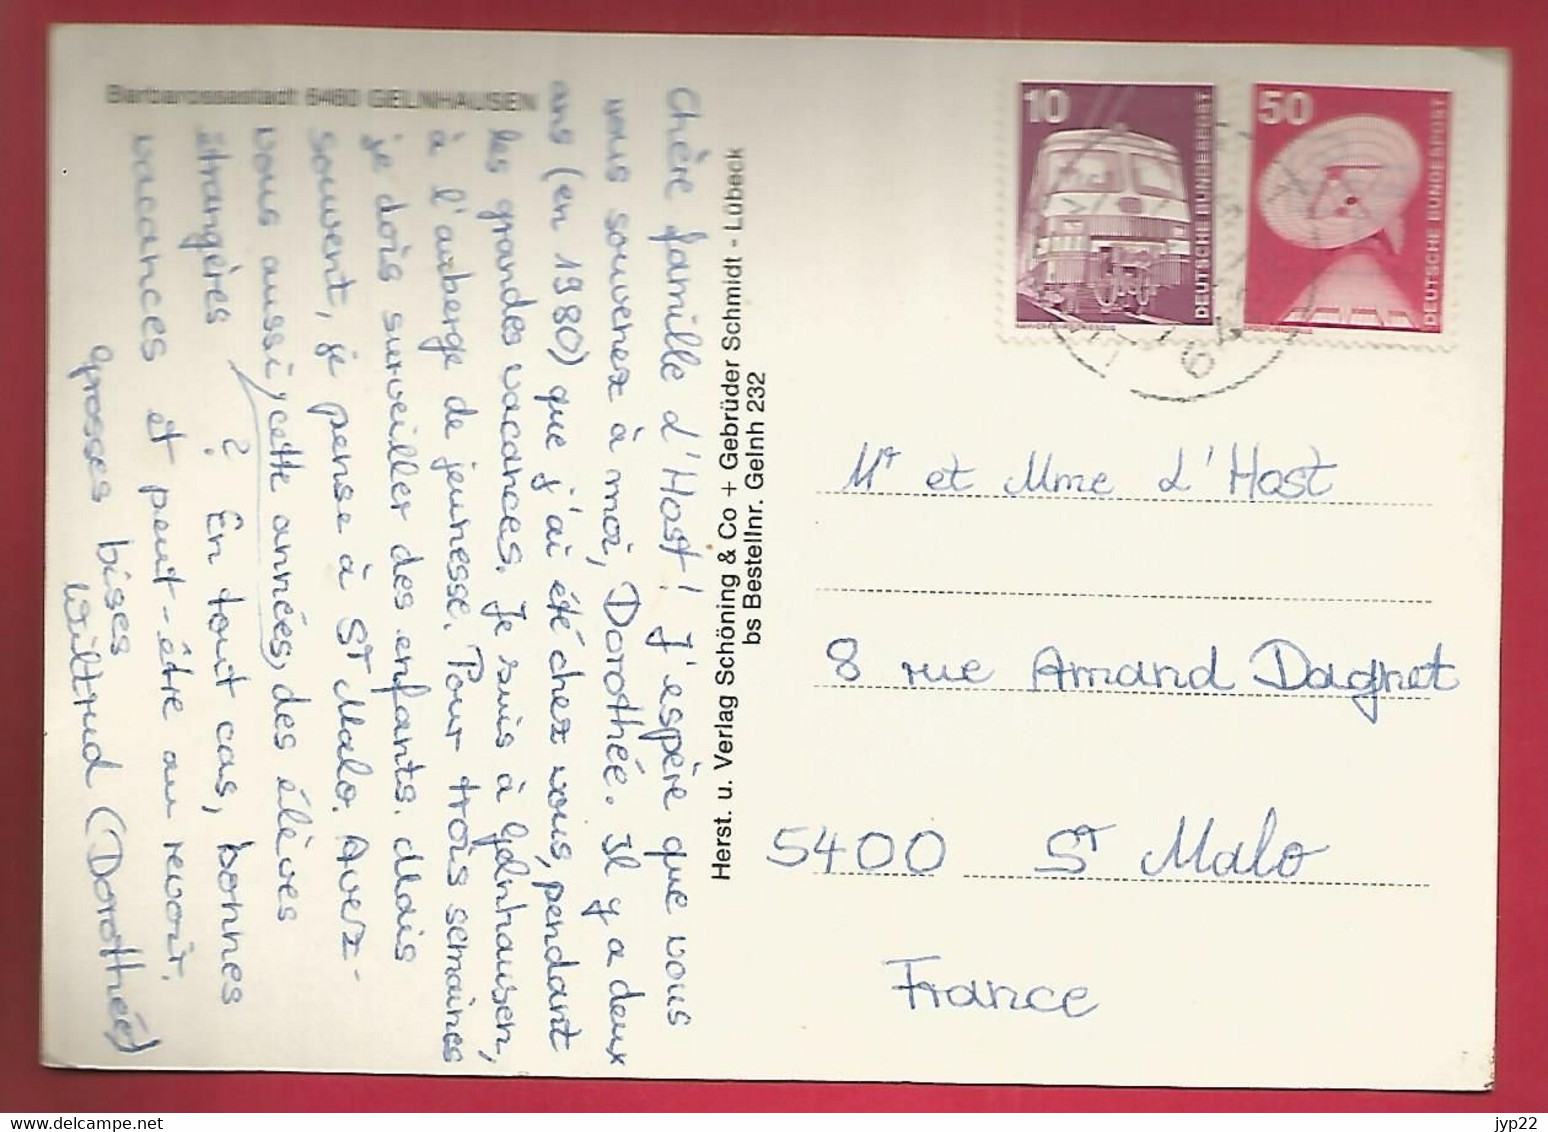 Barbarossastadt 6460 GELNHAUSEN
Chère famille d'Host! J'espère que vous
vous souvenez à moi, Dorothée. Il y a deux
ans (en 1980) que j'ai été chez vous, pendant
les grandes vacances. Je suis à Gelnhausen,
à l'auberge de jeunesse. Pour trois semaines
je dois surveiller des enfants. Mais
souvent, je pense à St Malo. Avez-
vous aussi, cette année, des élèves
étrangères ? En tout cas, bonnes
vacances et peut-être au revoir.
grosses bises
Wiltrud (Dorothée)
Herst. u. Verlag Schöning & Co + Gebrüder Schmidt - Lübeck
bs Bestellnr. Gelnh 232
10
DEUTSCHE BUNDESPOST
50
DEUTSCHE BUNDESPOST
Mr et Mme L'Host
8 rue Amand Dagnet
5400 St Malo
France
www.delcampe.net
jyp22